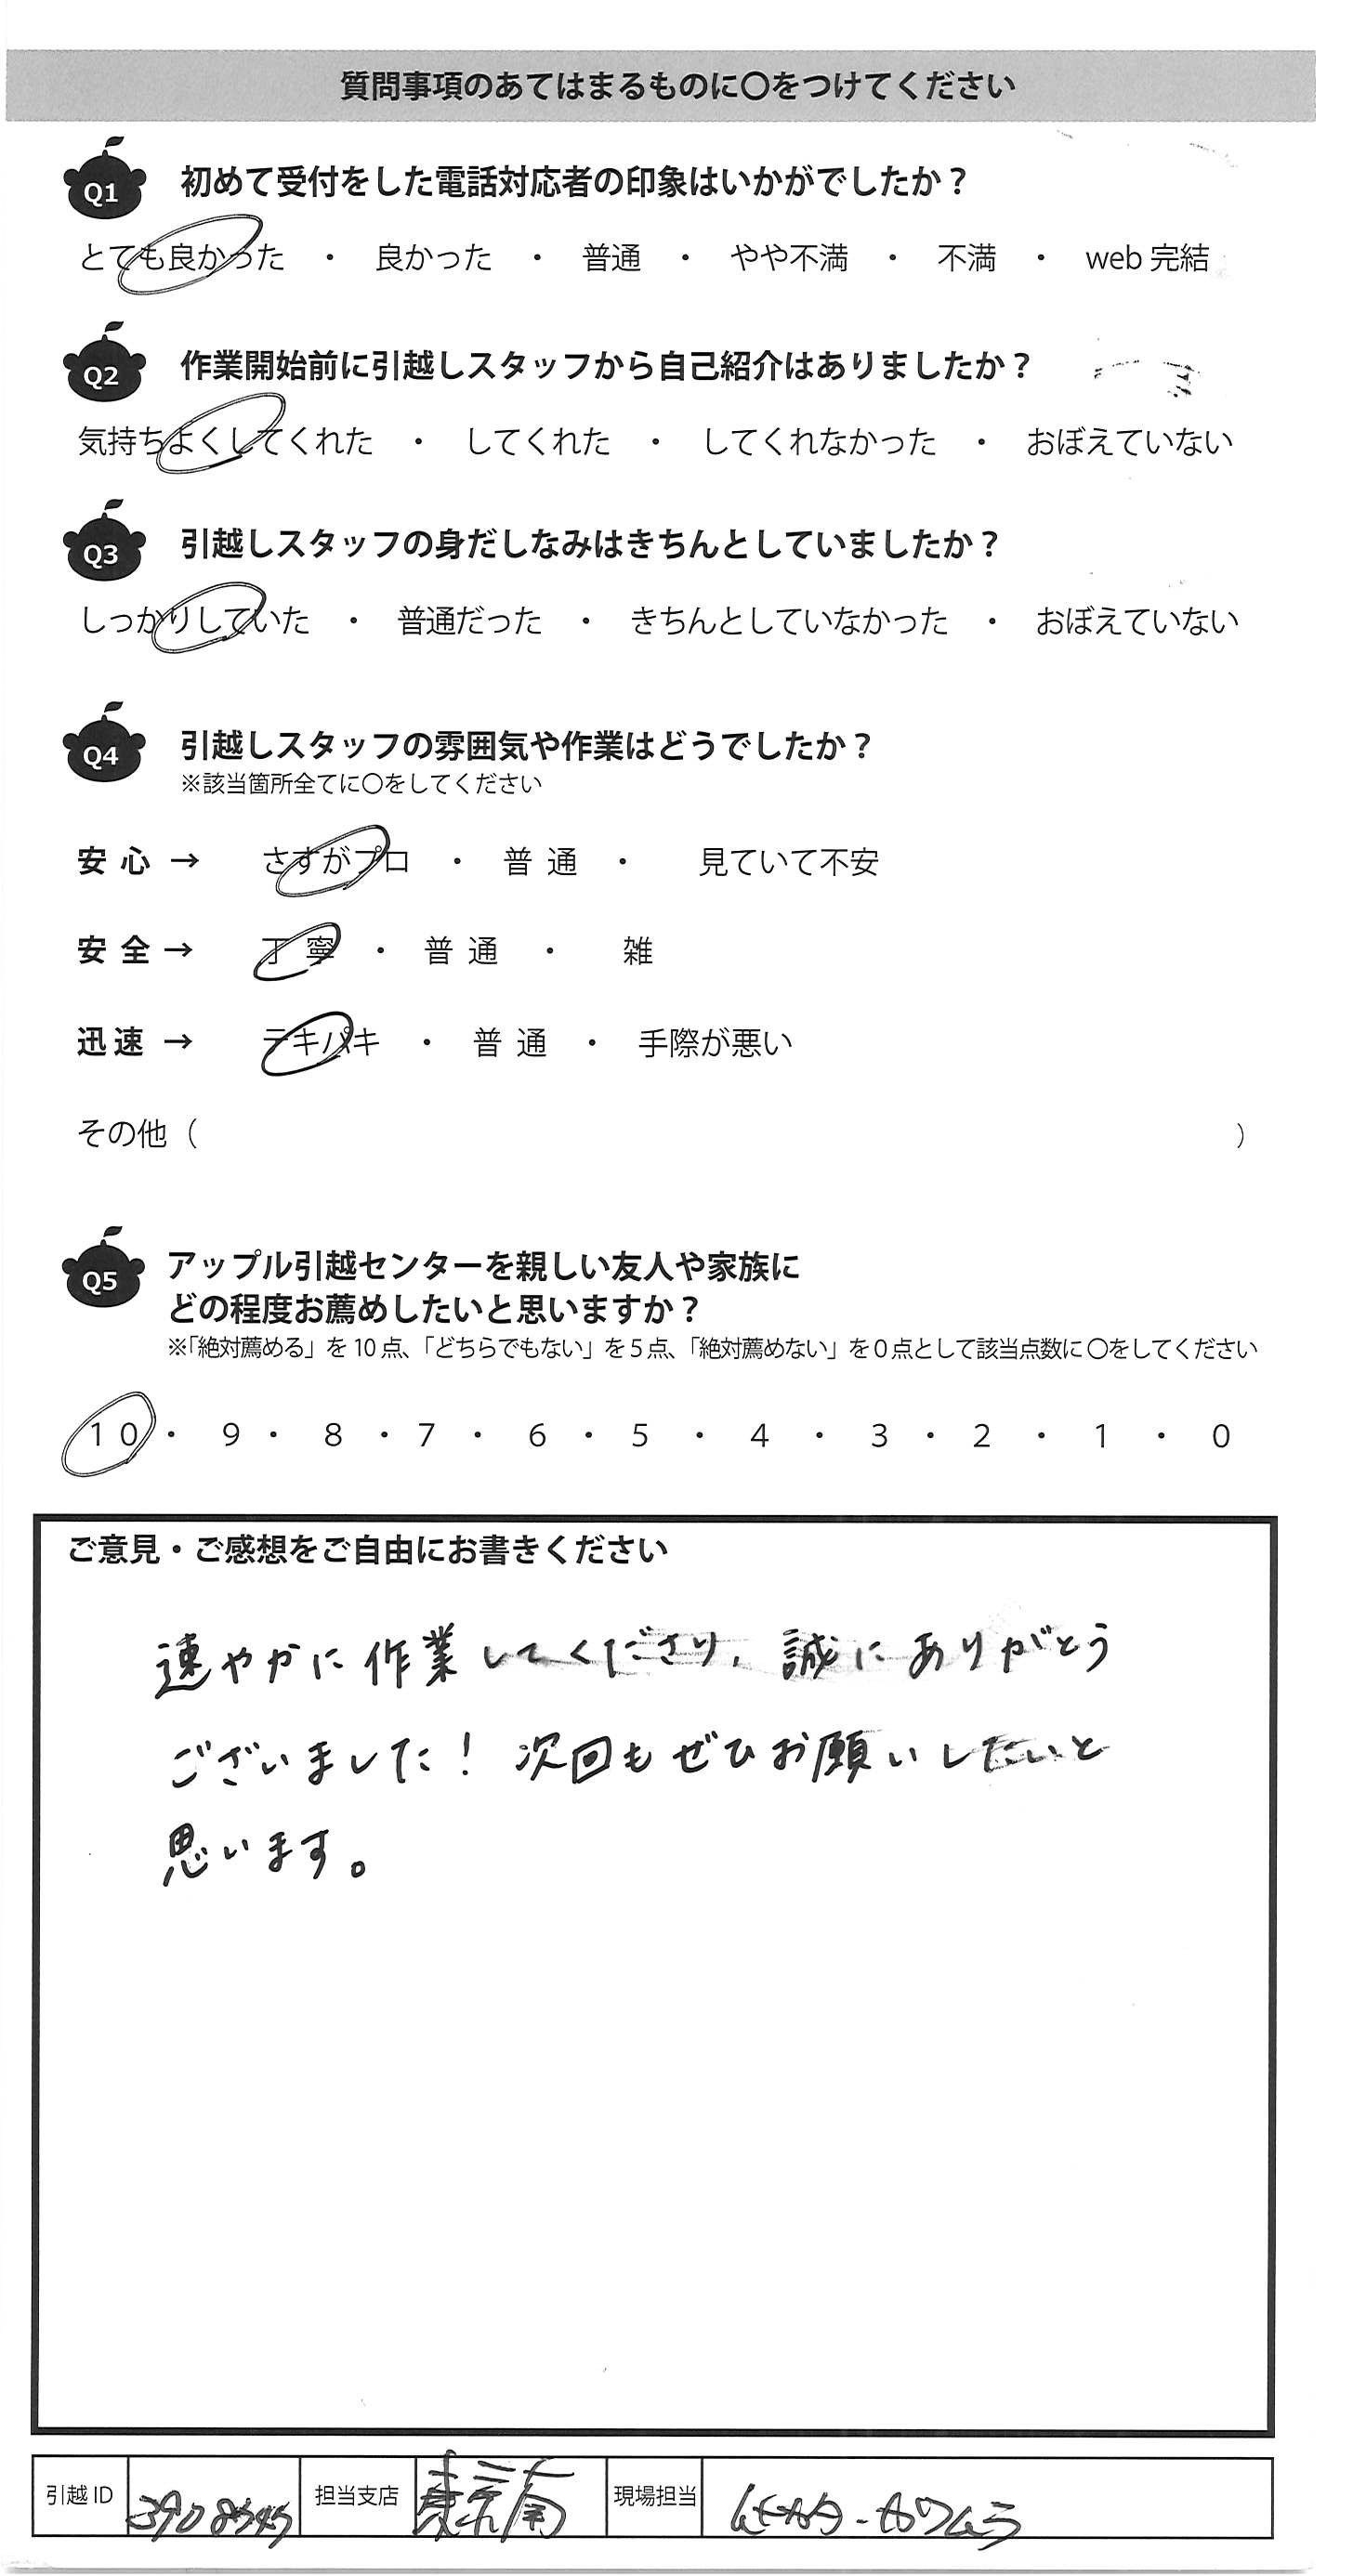 質問事項のあてはまるものに〇をつけてください
Q1 初めて受付をした電話対応者の印象はいかがでしたか？
とても良かった ・ 良かった ・ 普通 ・ やや不満 ・ 不満 ・ web 完結
Q2 作業開始前に引越しスタッフから自己紹介はありましたか？
気持ちよくしてくれた ・ してくれた ・ してくれなかった ・ おぼえていない
Q3 引越しスタッフの身だしなみはきちんとしていましたか？
しっかりしていた ・ 普通だった ・ きちんとしていなかった ・ おぼえていない
Q4 引越しスタッフの雰囲気や作業はどうでしたか？
※該当箇所全てに〇をしてください
安心 → さすがプロ ・ 普通 ・ 見ていて不安
安全 → 丁寧 ・ 普通 ・ 雑
迅速 → テキパキ ・ 普通 ・ 手際が悪い
その他（ ）
Q5 アップル引越センターを親しい友人や家族に
どの程度お薦めしたいと思いますか？
※「絶対薦める」を 10 点、「どちらでもない」を 5 点、「絶対薦めない」を 0 点として該当点数に 〇をしてください
10 ・ 9 ・ 8 ・ 7 ・ 6 ・ 5 ・ 4 ・ 3 ・ 2 ・ 1 ・ 0
ご意見・ご感想をご自由にお書きください
速やかに作業してくださり、誠にありがとう
ございました！次回もぜひお願いしたいと
思います。
引越 ID 担当支店 東京南 現場担当